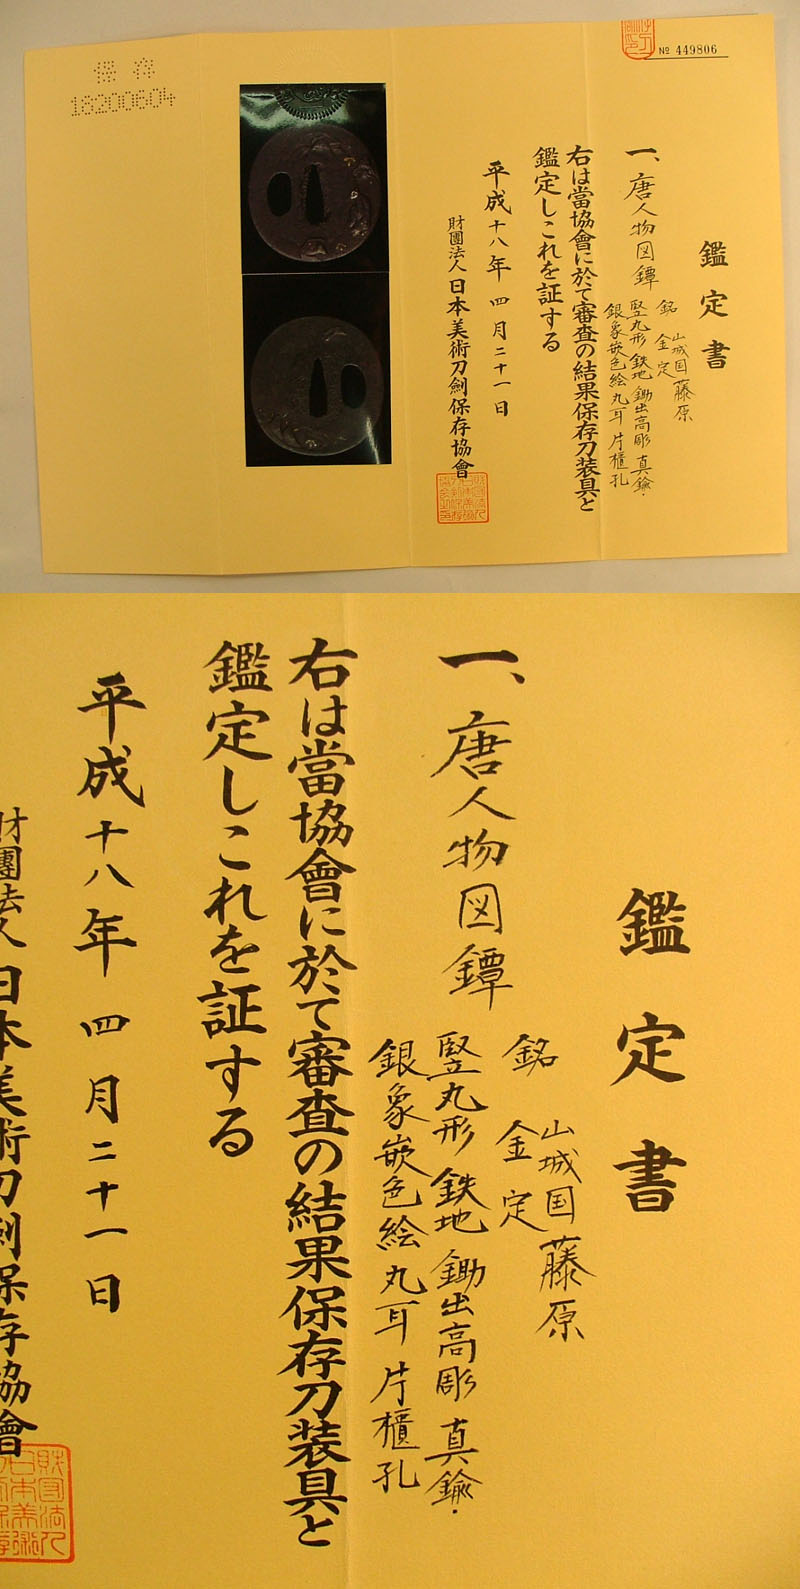 保存
18200604
№ 449806
鑑定書
一、唐人物図鐔
銘 山城国藤原
金定
竪丸形 鉄地 鋤出高彫 真鍮・
銀象嵌色絵 丸耳 片櫃孔
右は當協會に於て審査の結果保存刀装具と
鑑定しこれを証する
平成十八年四月二十一日
財團法人日本美術刀劍保存協會
鑑定書
一、唐人物図鐔
銘 山城国藤原
金定
竪丸形 鉄地 鋤出高彫 真鍮・
銀象嵌色絵 丸耳 片櫃孔
右は當協會に於て審査の結果保存刀装具と
鑑定しこれを証する
平成十八年四月二十一日
財團法人日本美術刀劍保存協會